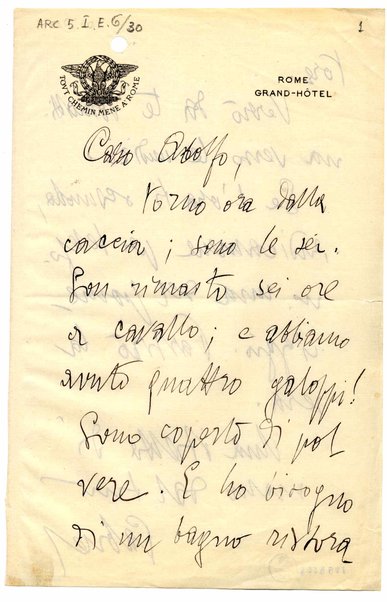 ARC 5. I. E. 6/30
1
TOVT CHEMIN MENE A ROME
ROME
GRAND-HÔTEL
Caro Adolfo,
torno ora dalla
caccia; sono le sei.
Son rimasto sei ore
a cavallo; e abbiamo
avuto quattro galoppi!
Sono coperto di pol
vere. E ho bisogno
di un bagno ristora